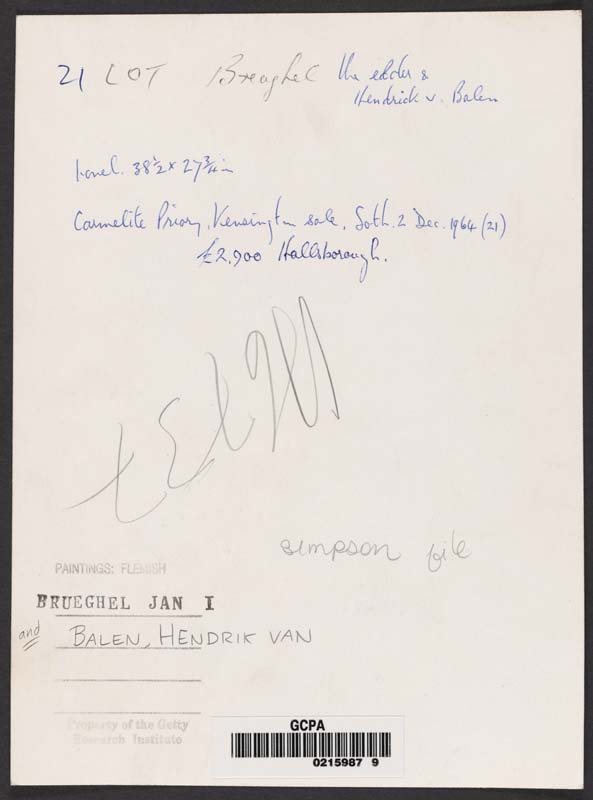 21 LOT Breughel the elder &
Hendrick v. Balen
panel. 38½ x 27¾ in
Carmelite Priory, Kensington sale, Soth. 2 Dec. 1964 (21)
£2,900 Hallsborough.
simpson file
PAINTINGS: FLEMISH
BRUEGHEL JAN I
and BALEN, HENDRIK VAN
Property of the Getty
Research Institute
GCPA
0215987 9